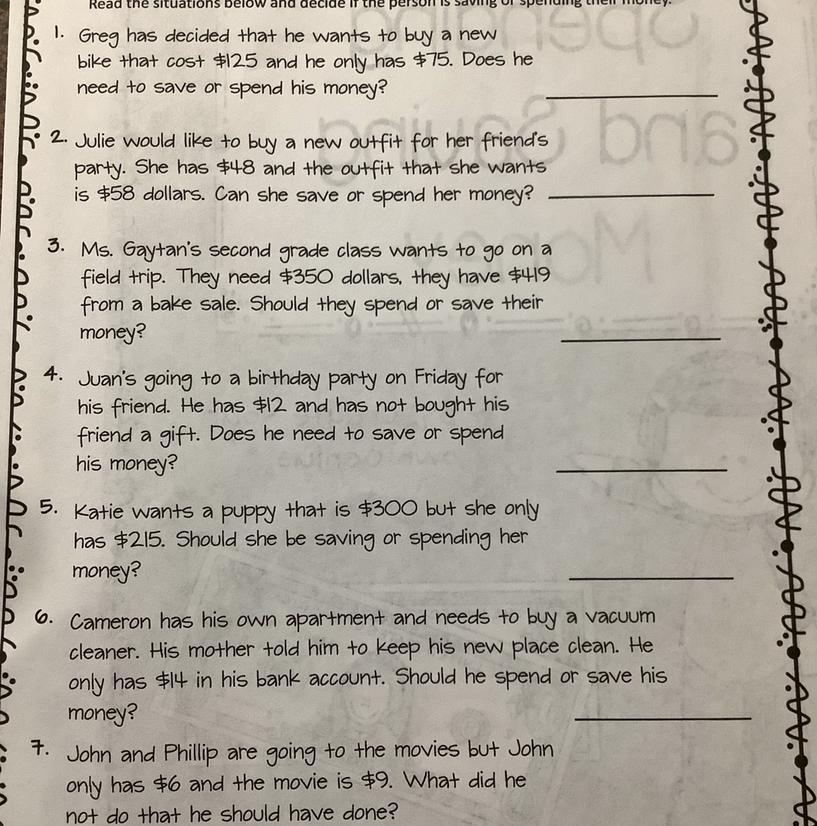 Read the situations below and decide if the person is saving or spending their money.
1. Greg has decided that he wants to buy a new
bike that cost $125 and he only has $75. Does he
need to save or spend his money?
2. Julie would like to buy a new outfit for her friend's
party. She has $48 and the outfit that she wants
is $58 dollars. Can she save or spend her money?
3. Ms. Gaytan's second grade class wants to go on a
field trip. They need $350 dollars, they have $419
from a bake sale. Should they spend or save their
money?
4. Juan's going to a birthday party on Friday for
his friend. He has $12 and has not bought his
friend a gift. Does he need to save or spend
his money?
5. Katie wants a puppy that is $300 but she only
has $215. Should she be saving or spending her
money?
6. Cameron has his own apartment and needs to buy a vacuum
cleaner. His mother told him to keep his new place clean. He
only has $14 in his bank account. Should he spend or save his
money?
7. John and Phillip are going to the movies but John
only has $6 and the movie is $9. What did he
not do that he should have done?
Spending
and Saving
Money